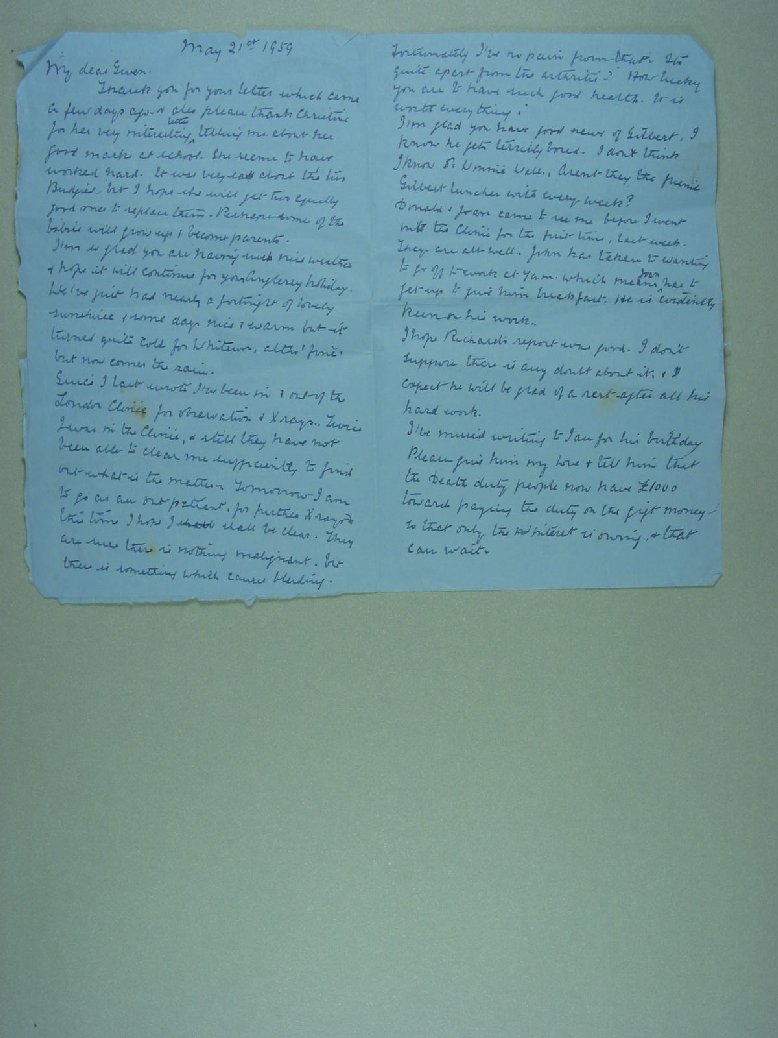 May 21st 1959
My dear Gwen.
Thank you for your letter which came
a few days ago & also please thank Christine
for her very interesting letter, telling me about her
good marks at school. She seems to have
worked hard. It was very sad about the two
Budgies. but I hope she will get two equally
good ones to replace them. Perhaps some of the
babies will grow up & become parents.
I'm so glad you are having such nice weather
& hope it will continue for your Anglesey holiday.
We've just had nearly a fortnight of lovely
sunshine & some days nice & warm but it
turned quite cold for Whitsun, altho' fine.
but now comes the rain.
Since I last wrote I've been in & out of the
London Clinic for observation & Xrays. Twice
I was in the Clinic, & still they have not
been able to clear me sufficiently to find
out what is the matter. Tomorrow I am
to go as an out patient, for further Xrays &
this time I hope I shall be clear. They
are sure there is nothing malignant. but
there is something which causes bleeding.
Fortunately I've no pain from that. Its
quite apart from the arthritis! How lucky
you are to have such good health. It is
worth everything!
I'm glad you have good news of Gilbert. I
know he gets terribly bored. I don't think
I know Dr Winnie Well.. Aren't they the friends
Gilbert lunches with every week?
Donald & Joan came to see me before I went
into the Clinic for the first time, last week.
They are all well. John has taken to wanting
to go off to work at 7am. which means Joan has to
get up to give him breakfast. He is evidently
keen on his work.
I hope Richard's report was good. I don't
suppose there is any doubt about it. & I
expect he will be glad of a rest after all his
hard work.
I've missed writing to Ian for his birthday
Please give him my love & tell him that
the Death duty people now have £1000
towards paying the duty on the gift money
so that only the interest is owing, & that
can wait.